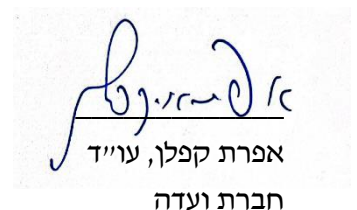 אפרת קפלן, עו״ד
חברת ועדה